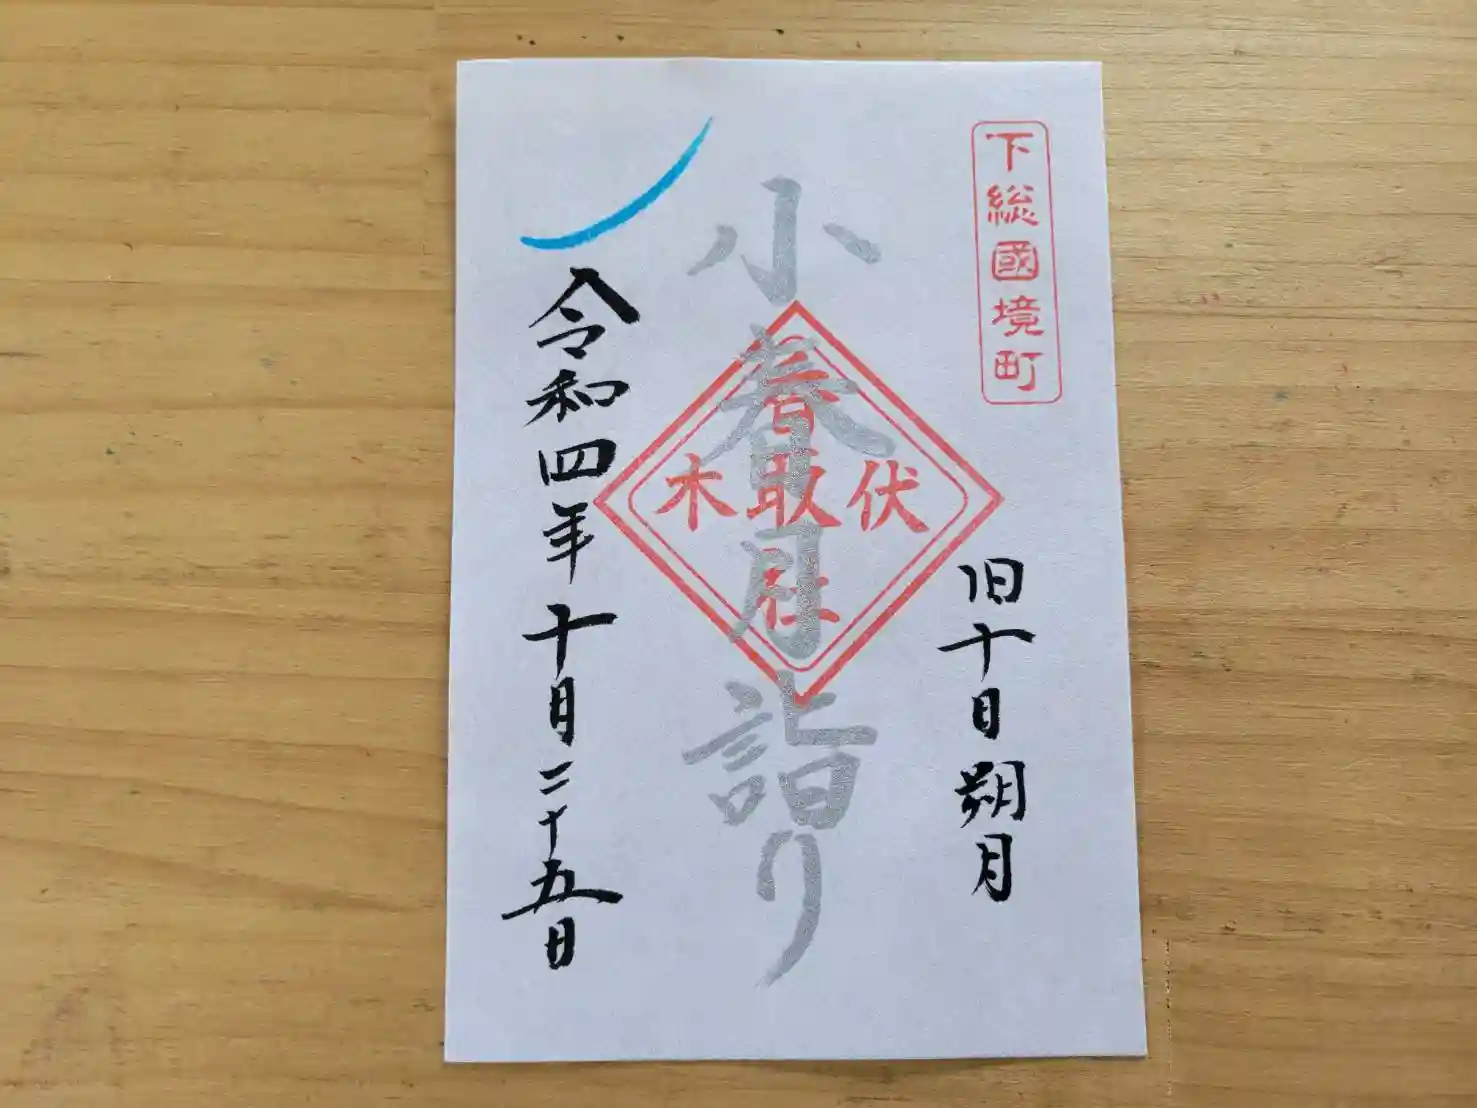 下総國境町
旧十月朔日
小春月詣り
伏木
香取社
令和四年十月二十五日